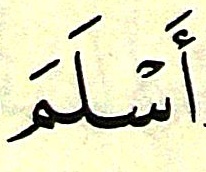 أَسْلَمَ